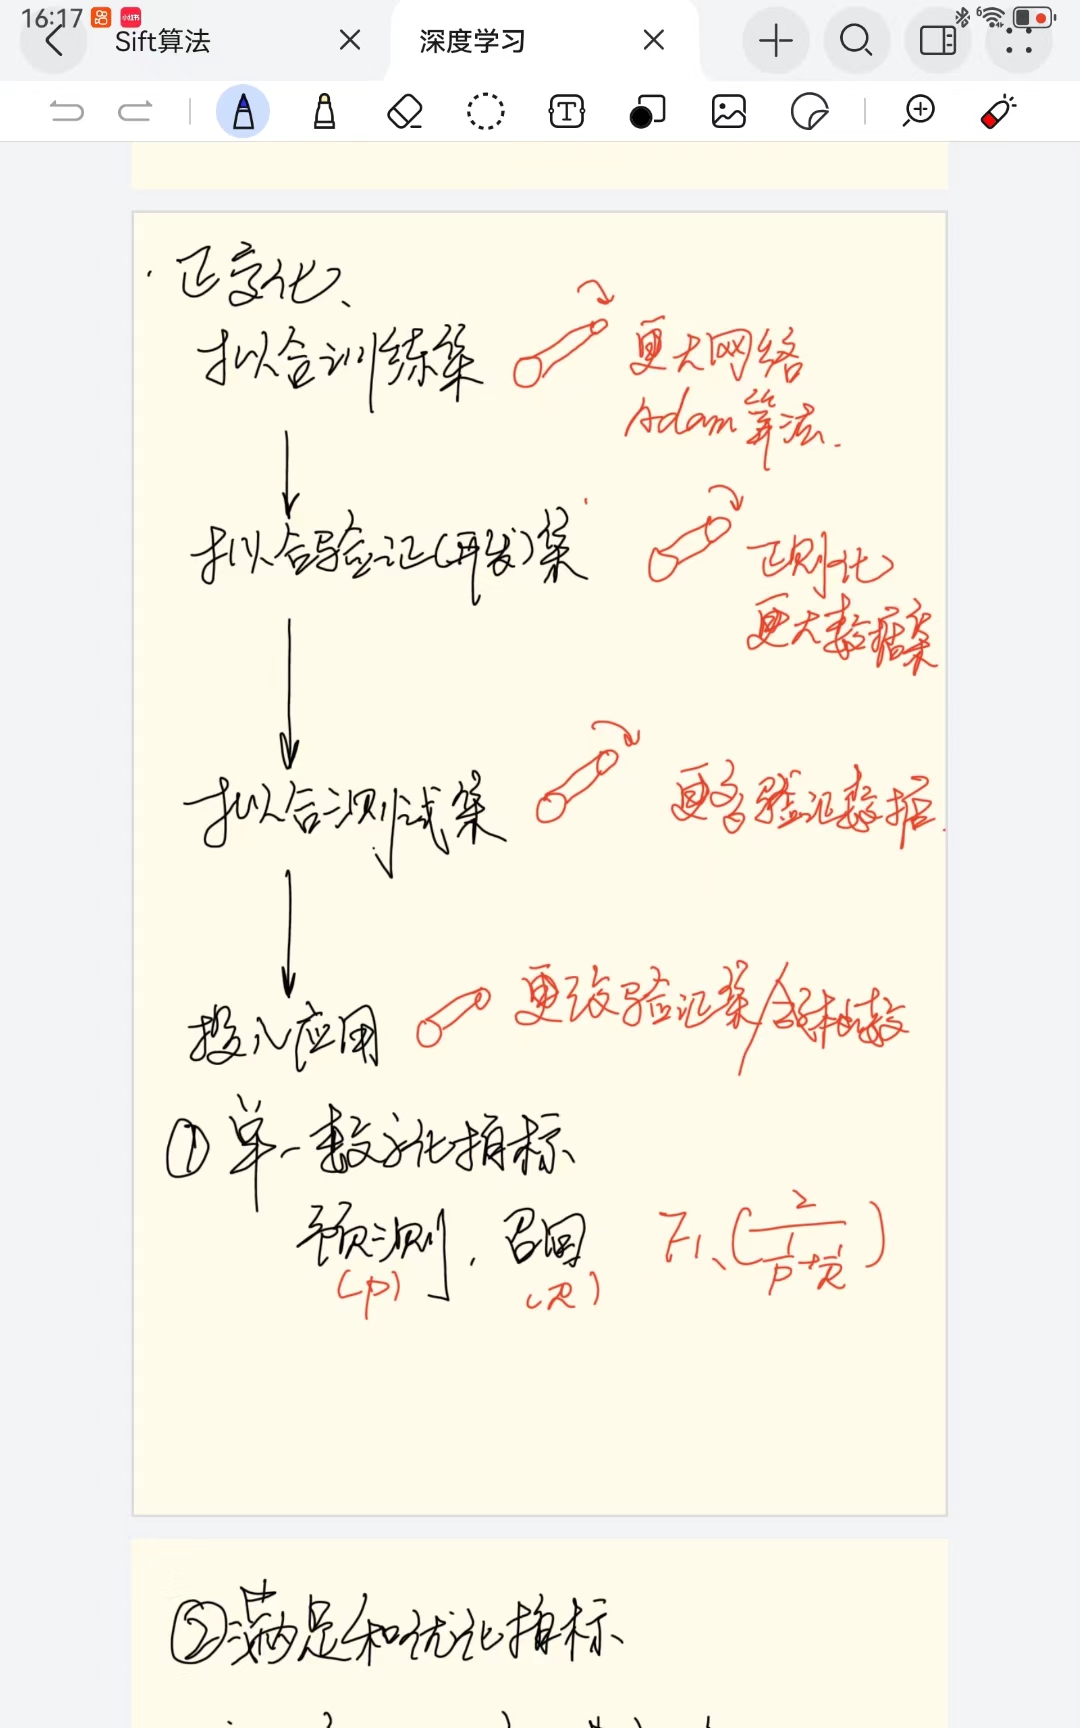 16:17
Sift算法
深度学习
正交化、
拟合训练集
更大网络
Adam算法.
拟合验证(开发)集
正则化
更大数据集
拟合测试集
更多验证数据.
投入应用
更改验证集/
① 单一数字化指标
预测, 召回 F1、(2/(1/P+1/R))
(P) (R)
②满足和优化指标